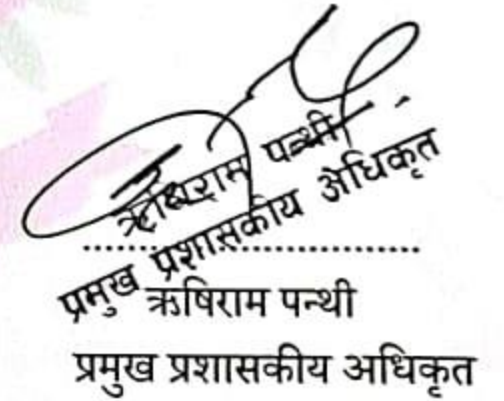 ऋषिराम पन्थी
प्रमुख प्रशासकीय अधिकृत
.............................................
ऋषिराम पन्थी
प्रमुख प्रशासकीय अधिकृत